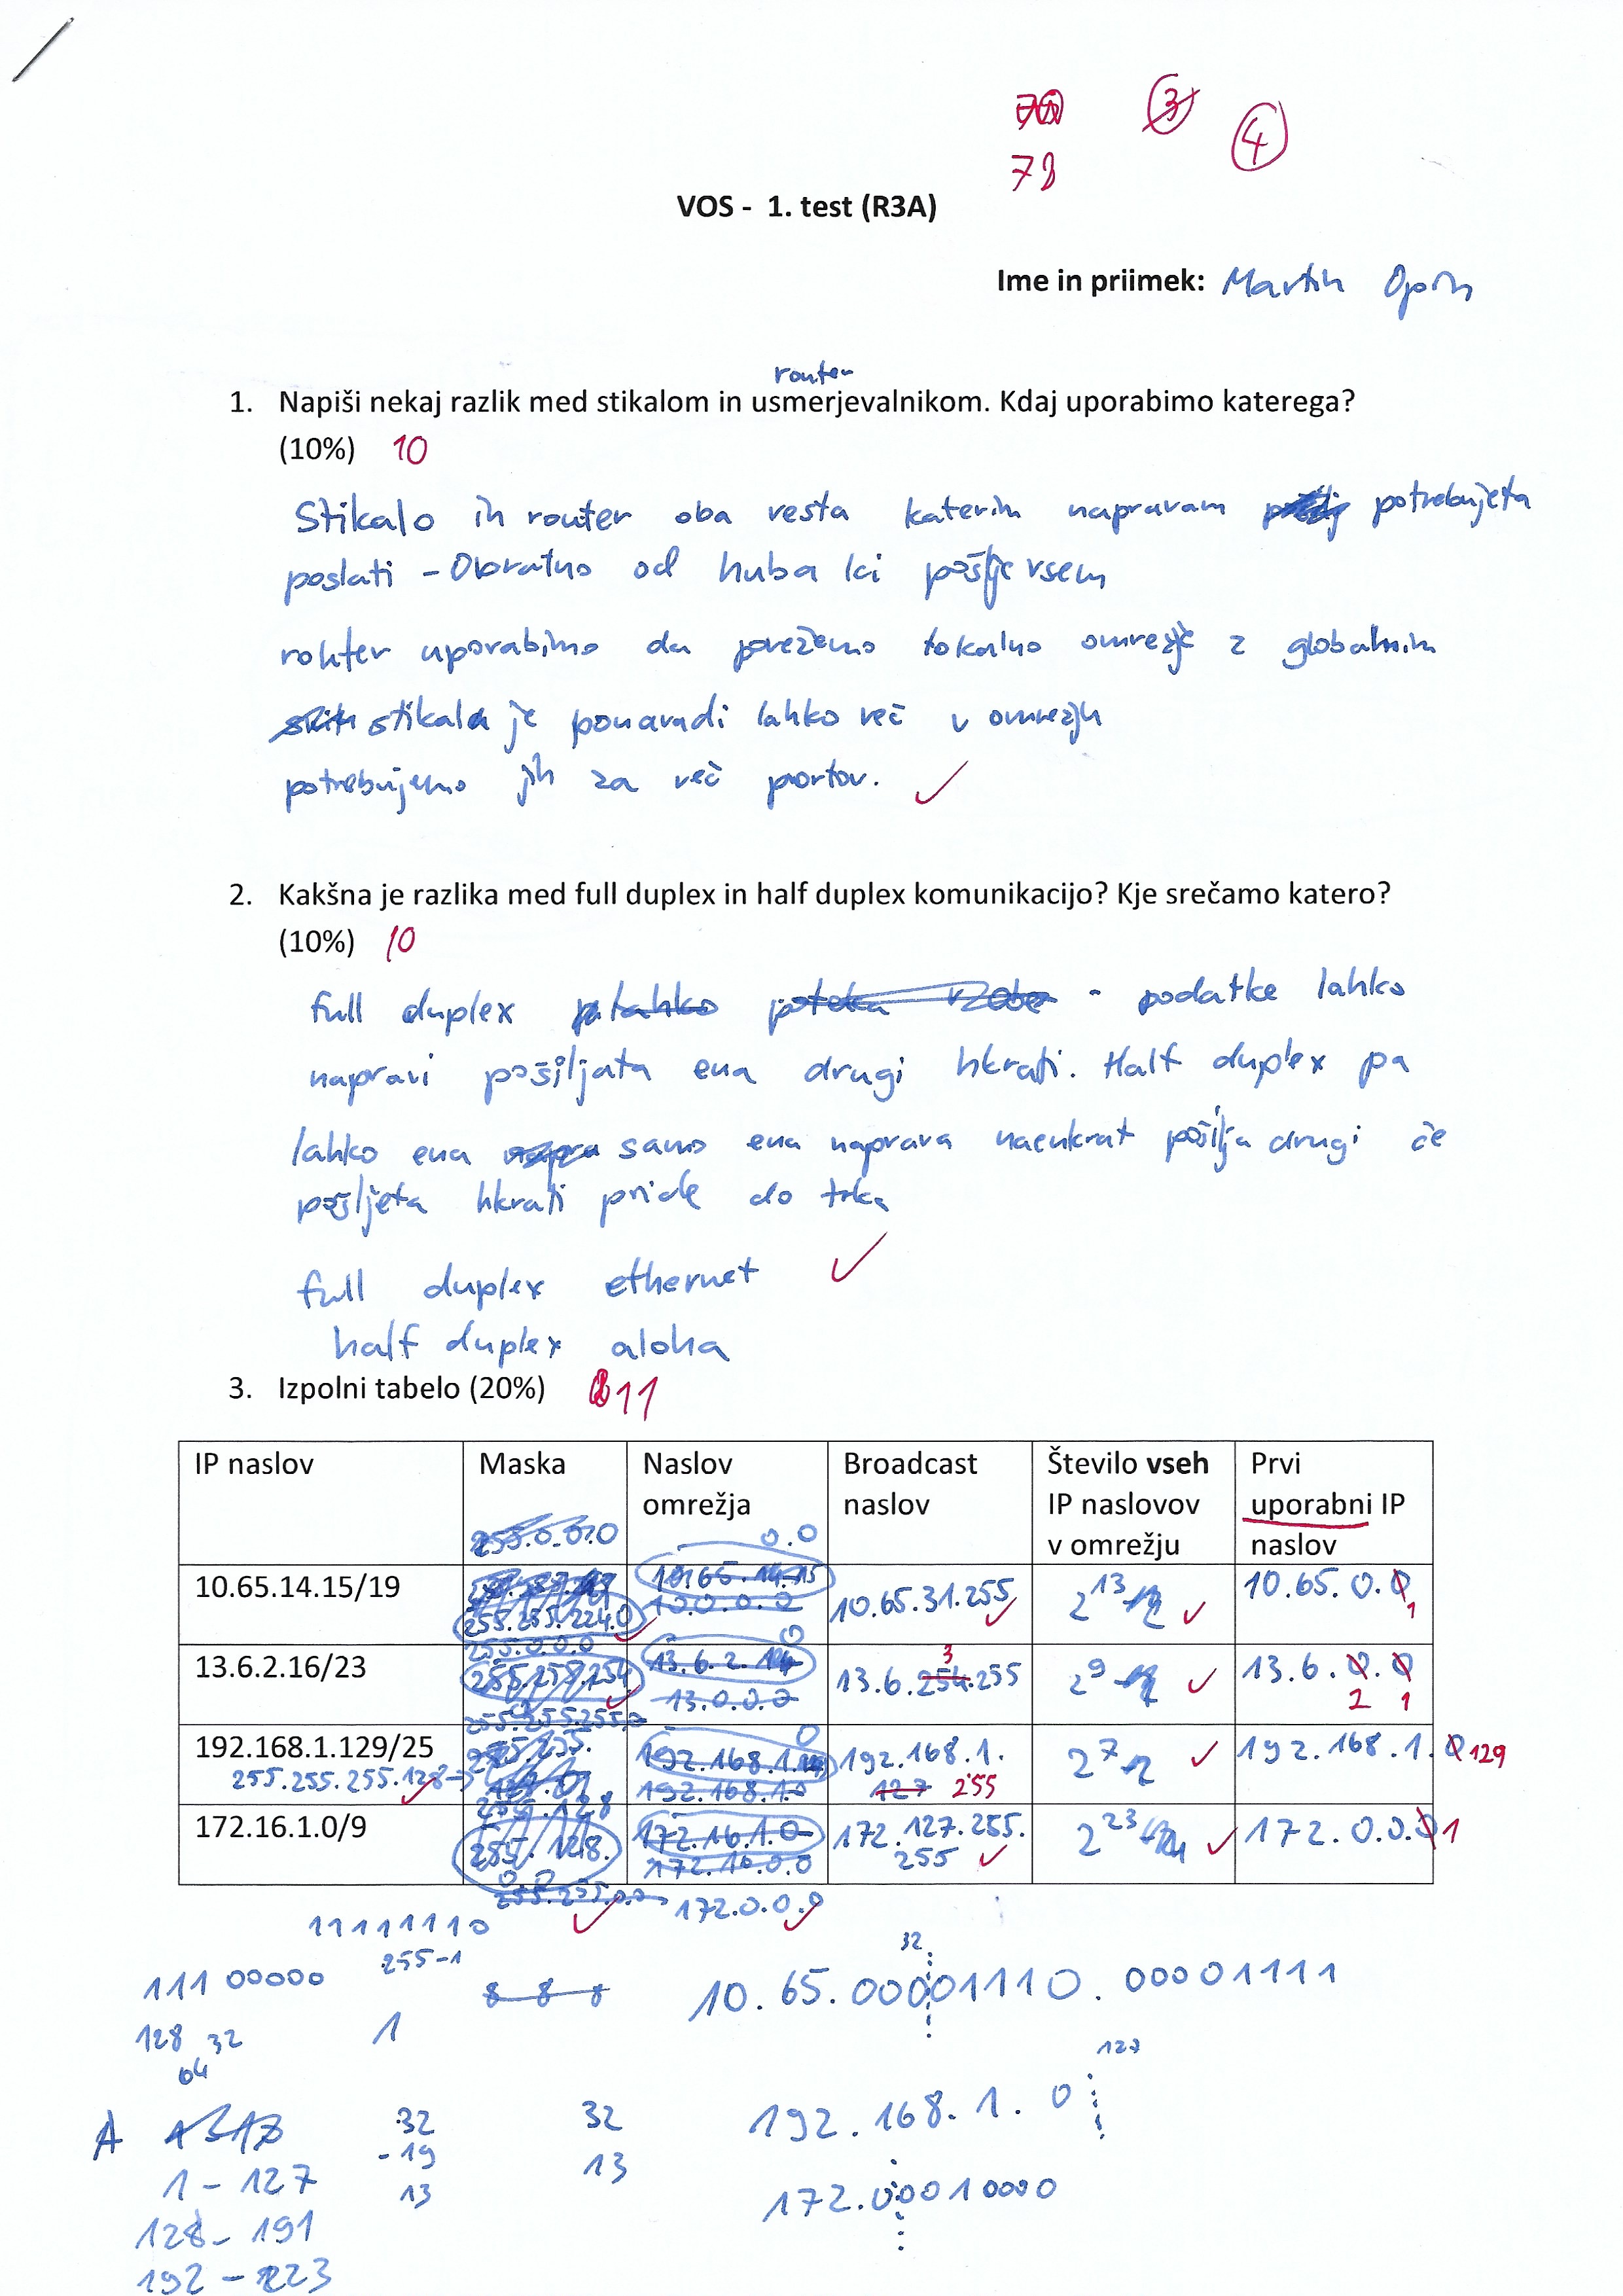 78
4
VOS - 1. test (R3A)
Ime in priimek: Martin
router
1. Napiši nekaj razlik med stikalom in usmerjevalnikom. Kdaj uporabimo katerega?
(10%) 10
Stikalo in router oba vesta katerim napravam potrebujeta
poslati - Obratno od huba ki pošlje vsem
router uporabimo da povežemo lokalno omrežje z globalnim
stikala je ponavadi lahko več v omrežju
potrebujemo jih za več portov.
2. Kakšna je razlika med full duplex in half duplex komunikacijo? Kje srečamo katero?
(10%) 10
full duplex - podatke lahko
napravi pošiljata ena drugi hkrati. Half duplex pa
lahko ena samo ena naprava naenkrat pošilja drugi če
pošljeta hkrati pride do trka
full duplex ethernet
half duplex aloha
3. Izpolni tabelo (20%) 11
IP naslov Maska Naslov omrežja Broadcast naslov Število vseh IP naslovov v omrežju Prvi uporabni IP naslov
10.65.14.15/19 255.255.224.0 10.65. 0.0 10.65.31.255 2^13 10.65.0.0 1
13.6.2.16/23 13.6.2. 0 13.6.254.255 3 2^9 13.6.0.0 2 1
192.168.1.129/25 255.255.255.128 192.168.1. 0 192.168.1.127 255 2^7 192.168.1.0 129
172.16.1.0/9 255.128.0.0 172.0.0.0 172.127.255.255 2^23 172.0.0.0 1
11111110
255-1
111 00000
8 8 8
32
10.65.00001110.00001111
128 32
64
1
127
A
32
-19
13
32
13
192.168.1.0
1-127
172.00010000
128-191
192-223